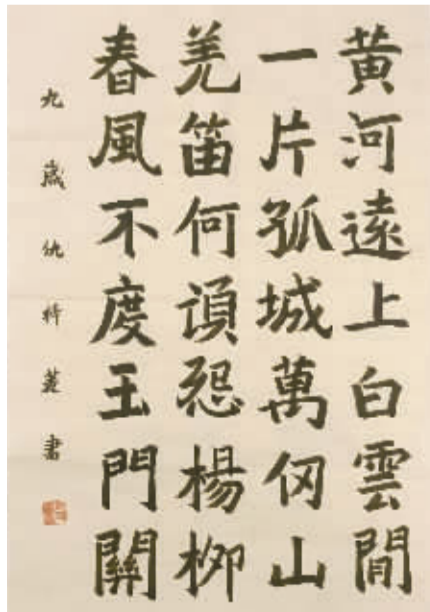 黄河遠上白雲間
一片孤城萬仞山
羌笛何須怨楊柳
春風不度玉門關
九歲仇梓菱書